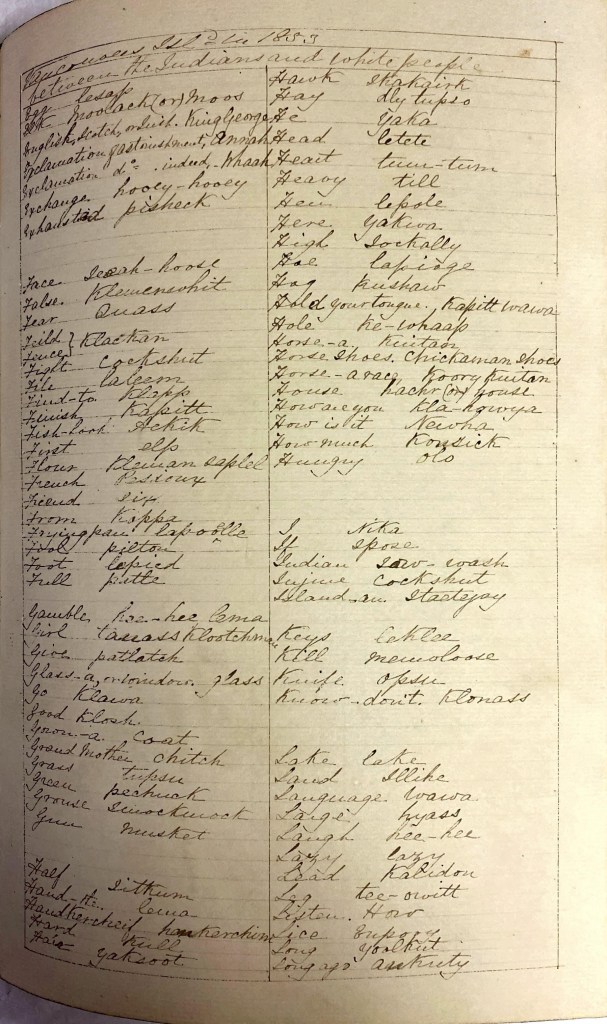 Vancouvers Isld in 1853
between the Indians and White people
Egg lesap
Elk Moolack (or) Moos
English, Scotch, or Irish. King George
Exclamation of astonishment, Annah
Exclamation do = indeed, Whaah
Exchange hooey-hooey
Exhausted pisheck
Face Seeah-hoose
False. Klemenwhit
Fear Quass
Feild } Klackan
Fence }
Fight Cockshut
File laleem
Find-to Klapp
Finish Kapitt
Fish-hook Ackik
First elp
Flour Kleman saplel
French
Friend six
From Kippa
Frying pan lap-o-elle
Fool pilton
Foot lepied
Full patle
Gamble hee-hee lema
Girl tanass Klootchman
Give patlatch
Glass-a, or window. glass
Go Klawa
Good Klosh.
Gown-a. Coat
Grand Mother Chitch
Grass tupsu
Green pechuck
Grouse Smockmock
Gun Musket
Half Sitkum
Hand-the lema
Handkercheif hankerchim
Hard Kull
Hair Yaksoot
Hawk Shakairk
Hay dly tupso
He Yaka
Head letete
Heart tum-tum
Heavy till
Hen lepole
Here Yakwa
High Sockally
Hoe lapioge
Hog Kushaw
Hold your tongue. Kapitt wawa
Hole Ke-whaap
Horse-a. Kuitan
Horse Shoes. Chickaman Shoes
Horse-a race Koory Kuitan
House hachr (or) house
How are you Kla-howya
How is it Newha
How much Konsick
Hungry Olo
I Nika
If Spose
Indian Sow-wash
Injure Cockshut
Island-an Staetejay
Keys leklee
Kill Memoloose
Knife Opsu
Know-don't. Klonass
Lake lake
Land Illihe
Language Wawa
Large hyass
Laugh hee-hee
Lazy lazy
Lead Kalidon
Leg tee-owitt
Listen. How
Lice Enpooy
Long Yoolkut
Long ago Ankuty